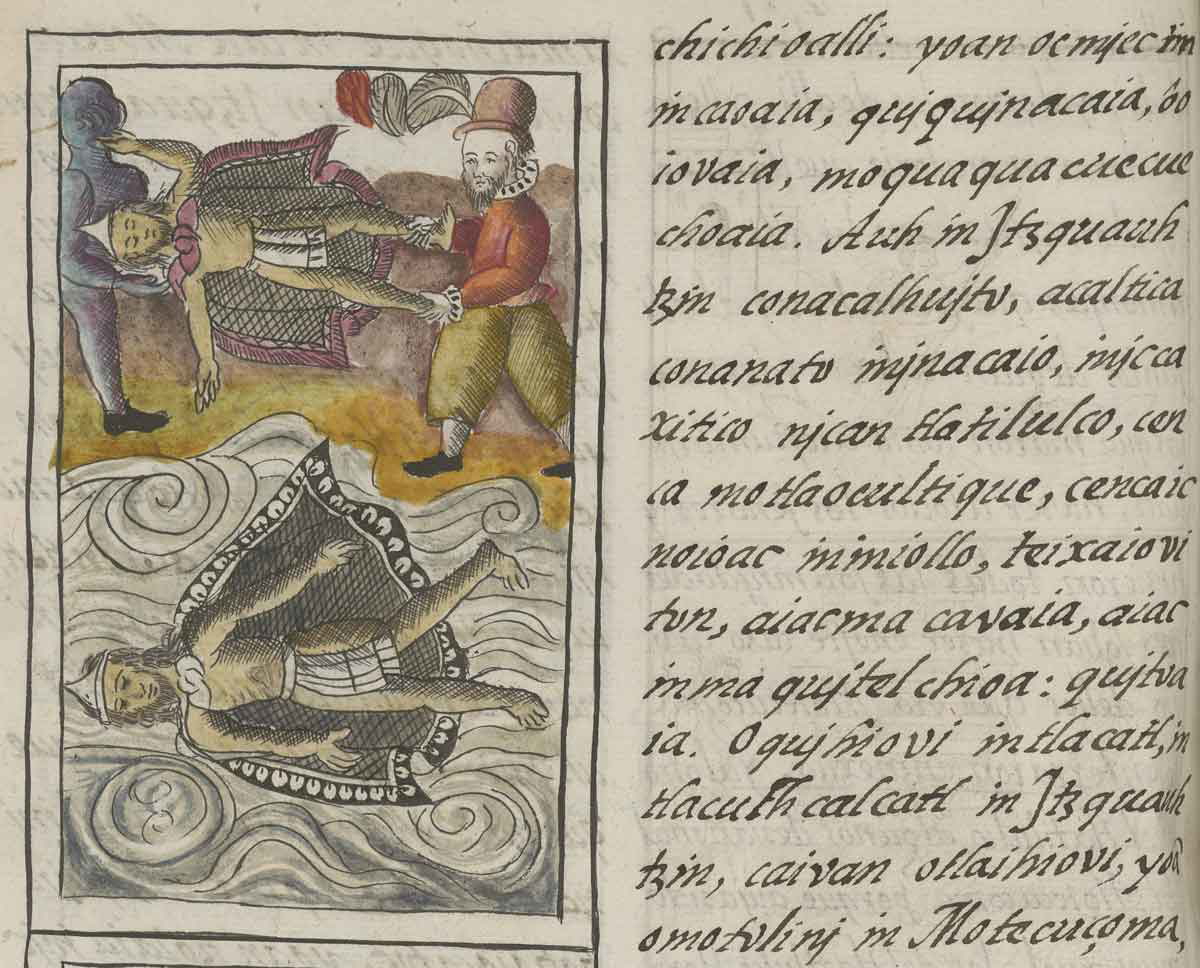 chichioalli: yoan oc mjec in
in caoaia, qujqujnacaia, oo
iovaia, moquaquacuecue
choaia. Auh in Jtzquauh
tzin conacalhujto, acaltica
conanato injnacaio, injc ca
xitico njcan tlatilulco, cen
ca motlaocultique, cencaic
noioac inmiollo, teixaiovi
ton, aiac ma cavaia, aiac
in ma qujtelchioa: qujtva
ia. Oqujhiovi in tlacatl, in
tlacuchcalcatl in Jtzquauh
tzin, caivan ollaihiovi, yoā
omotolinj in Motecuçoma,